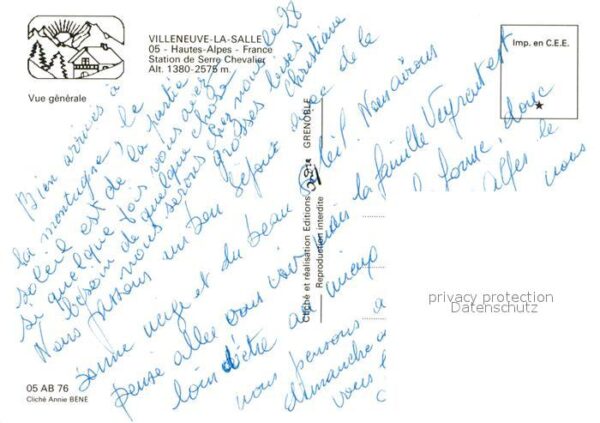 VILLENEUVE-LA-SALLE
05 - Hautes-Alpes - France
Station de Serre Chevalier
Alt. 1380-2575 m.
Vue générale
Imp. en C.E.E.
Bien arrivés à
la montagne, le
soleil est de la partie
si quelque fois vous avez
besoin de quelque chose
nous serons chez nous le 28
grosses bises
Christiane
Nous passons un bon séjour avec de la
bonne neige et du beau soleil. Nous aurions
pensé allez vous voir mais la famille Veyrout est
loin d'être au mieux forme, donc
nous pensons a
dimanche
vous
alfes le
nous
Cliché et réalisation Editions GRENOBLE
Reproduction interdite
05 AB 76
Cliché Annie BENE
privacy protection
Datenschutz